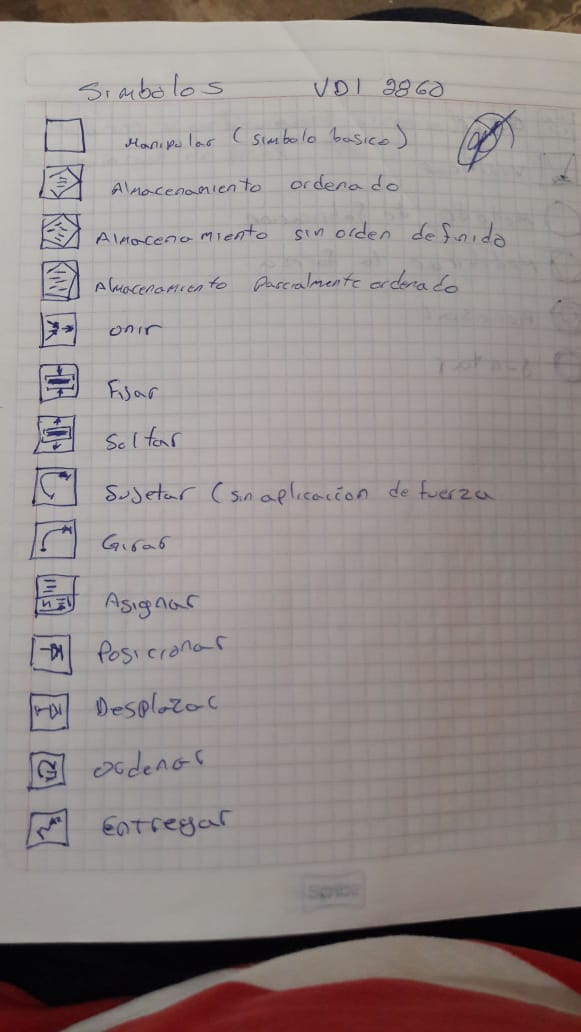 Simbolos VDI 2860
Manipular (simbolo basico)
Almacenamiento ordenado
Almacenamiento sin orden definido
Almacenamiento Parcialmente ordenado
onir
Fijar
Soltar
Sujetar (sin aplicacion de fuerza
Girar
Asignar
Posicionar
Desplazar
ordenar
Entregar